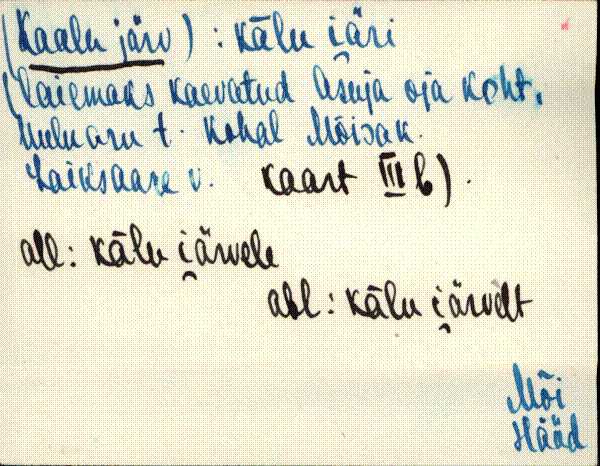 (Kaalu järv) : kālu i̯äri
(laiemaks kaevatud Asuja oja koht,
Uuluaru t. kohal Mõisak.
Laiksaare v. Kaart III b).
all: kālu i̯ärvele
abl: kālu i̯ärvelt
Mõi
Hääd